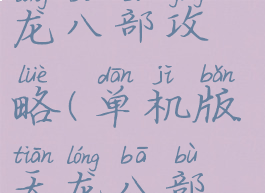 龙八部攻
lüè dān jī bǎn
略(单机版
tiān lóng bā bù
天龙八部